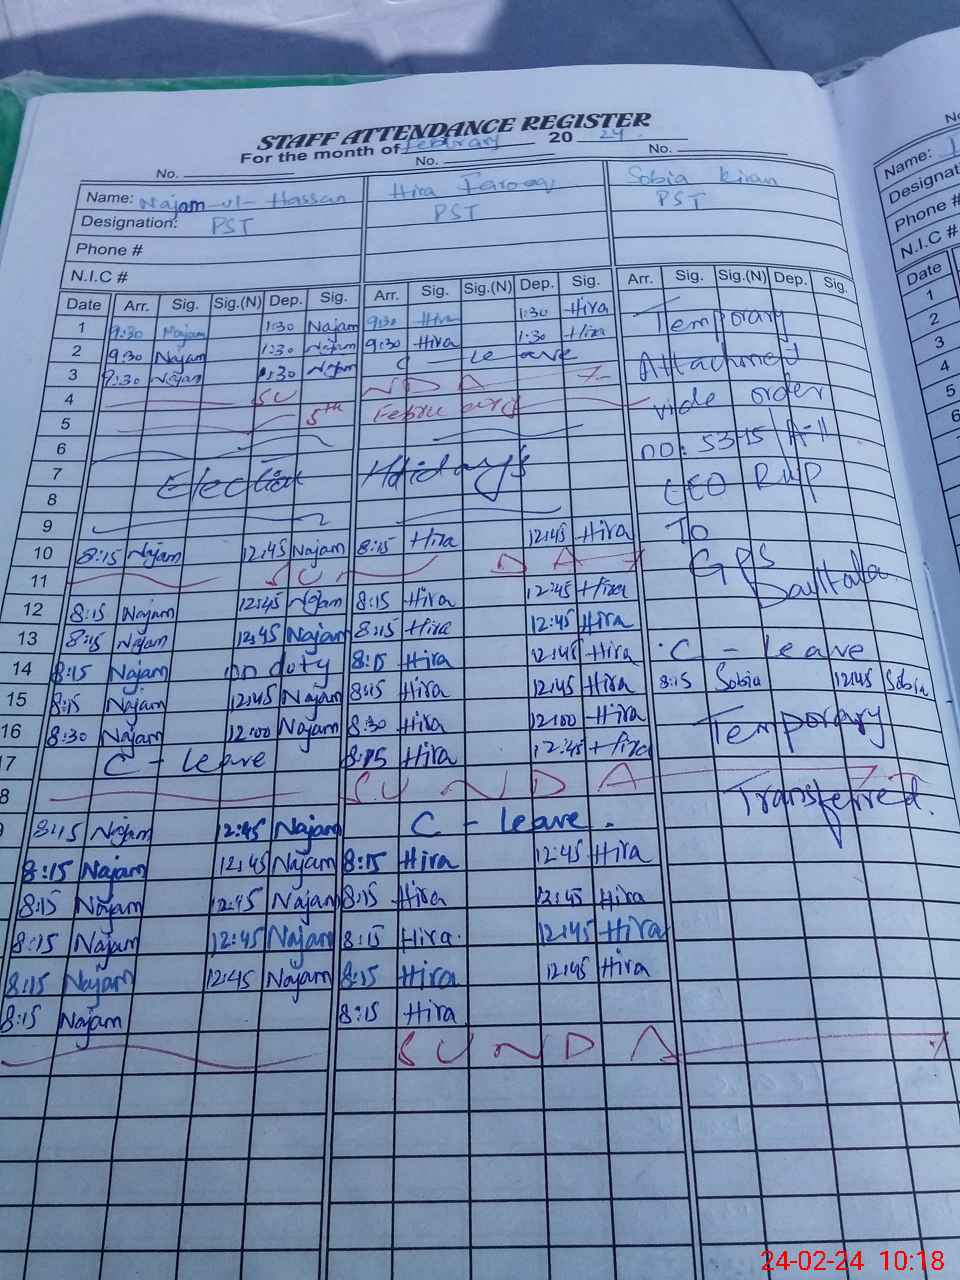 STAFF ATTENDANCE REGISTER
For the month of Februrary 20 24
No. No. No.
Name: Najam-ul-Hassan Hira Farooq Sobia Kiran
Designation: PST PST PST
Phone #
N.I.C #
Date Arr. Sig. Sig.(N) Dep. Sig. Arr. Sig. Sig.(N) Dep. Sig. Arr. Sig. Sig.(N) Dep. Sig.
1 9:30 Najam 1:30 Najam 9:30 Hira 1:30 Hira Temporary
2 9:30 Najam 1:30 Najam 9:30 Hira 1:30 Hira
3 9:30 Najam 1:30 Najam C - leave Attachment
4 SU NDAY vide order
5 5th February
6 no: 5345
7 Election Holidays
8 CEO RWP
9 To
10 8:15 Najam 12:45 Najam 8:15 Hira 12:45 Hira GPS
11 SUNDAY
12 8:15 Najam 12:45 Najam 8:15 Hira 12:45 Hira
13 8:15 Najam 12:45 Najam 8:15 Hira 12:45 Hira
14 8:15 Najam on duty 8:15 Hira 12:45 Hira C - leave
15 8:15 Najam 12:45 Najam 8:15 Hira 12:45 Hira 8:15 Sobia 12:45 Sobia
16 8:30 Najam 12:00 Najam 8:30 Hira 12:00 Hira Temporary
17 C - leave 8:15 Hira 12:45 Hira
8 SUNDAY Transferred.
8:15 Najam 12:45 Najam C - leave.
8:15 Najam 12:45 Najam 8:15 Hira 12:45 Hira
8:15 Najam 12:45 Najam 8:15 Hira 12:45 Hira
8:15 Najam 12:45 Najam 8:15 Hira. 12:45 Hira
8:15 Najam 12:45 Najam 8:15 Hira 12:45 Hira
8:15 Najam 8:15 Hira
SUNDAY
No
Name:
Designat
Phone #
N.I.C #
Date
1
2
3
4
5
6
24-02-24 10:18